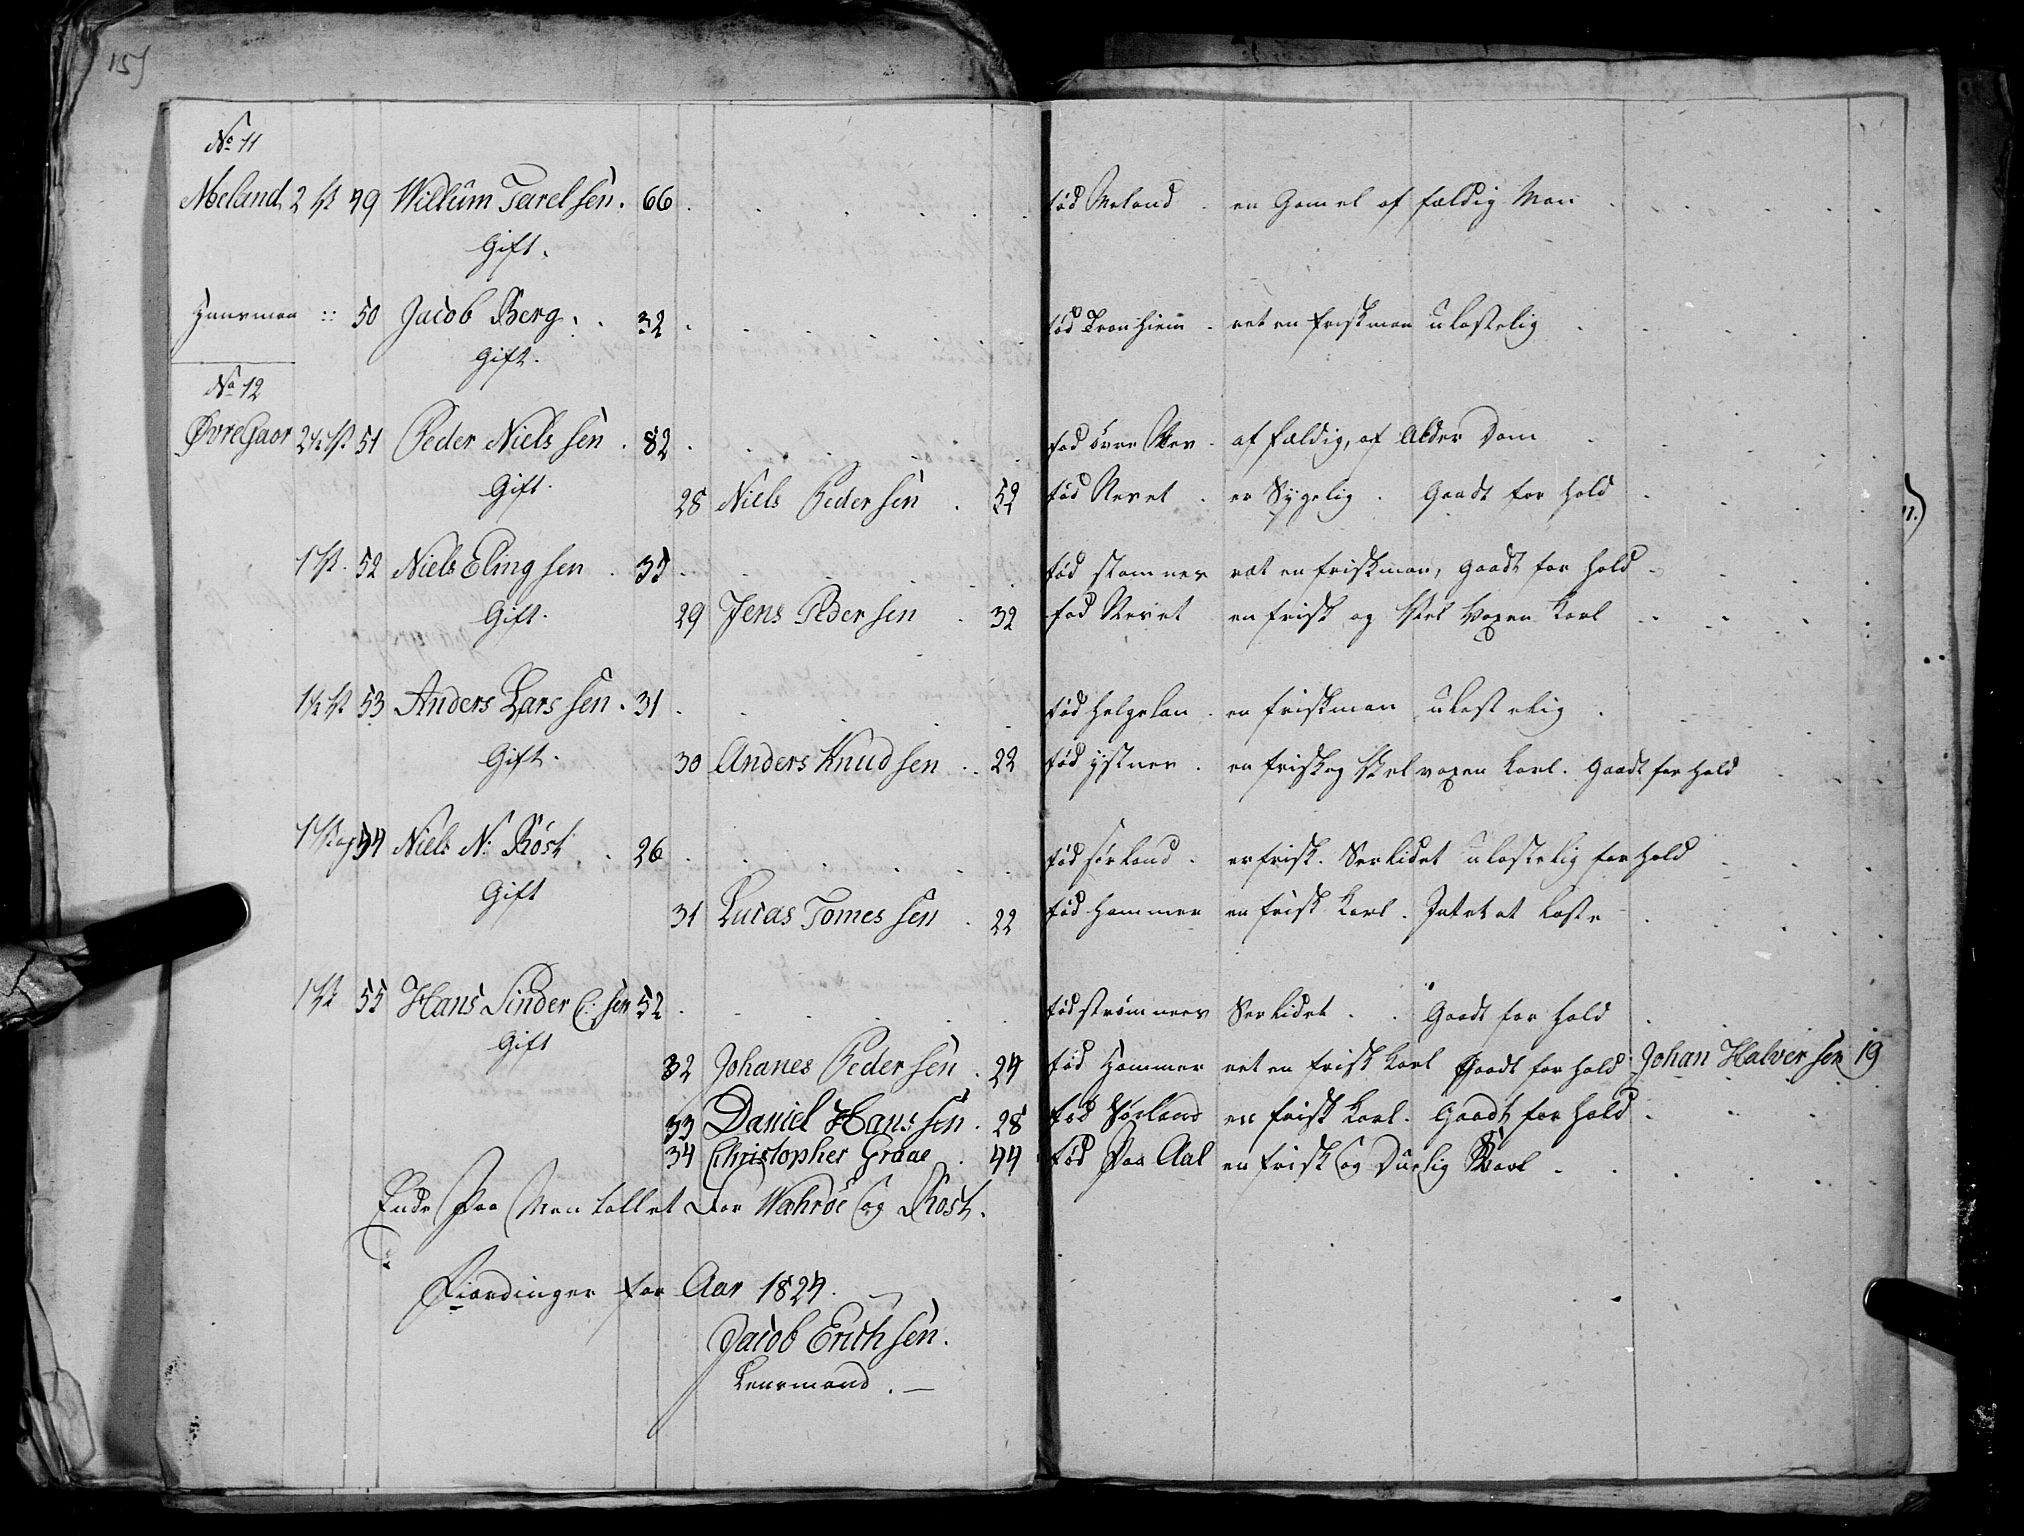 15)
No 11
Meland 2 49 Willum Tarelsen. 66 fød Meland en Gamel af fældig Man
Gift.
Huusman :: 50 Jacob Berg. 32 fød Tronhiem ret en friskman ulastelig
Gift.
No 12
ØvreGaor 2½ 51 Peder Nielssen 82 fød övre Rev af fældig, af Alder Dom
Gift. 28 Niels Pedersen 52 fød Revet er Sygelig Gaadt for Hold
1 52 Niels Elingsen 35 fød Stamnes ræt en friskman, Gaadt for Hold
Gift. 29 Jens Pedersen 32 fød Revet en frisk og Vel Voxen Karl
1½ 53 Anders Larssen. 31 fød Helgelan en friskman ulastelig
Gift. 30 Anders Knudsen 22 fød ystnes en frisk og Vel voxen Karl. Gaadt for Hold
1 54 Niels N: Röst 26 fød sørland er frisk. Ser lidet ulastelig for Hold
Gift 31 Lucas Tomessen 22 fød Hammer en frisk Karl. Intet at laste
1 55 Hans Sinder C: sen 52 fød strømnees Ser lidet Gaadt for Hold
Gift
32 Johanes Pedersen 24 fød Hammer ret en frisk Karl Gaadt for Hold Johan Halversen 19
33 Daniel Hanssen 28 fød Sørland en frisk Karl. Gaadt for Hold
34 Christopher Graae 44 fød Paa Aal en frisk og Duelig Karl
Ende Paa Mantallet For Wæhröe og Röst.
Fiordinger for Aar 1824.
Jacob Erichsen.
Lensmand.